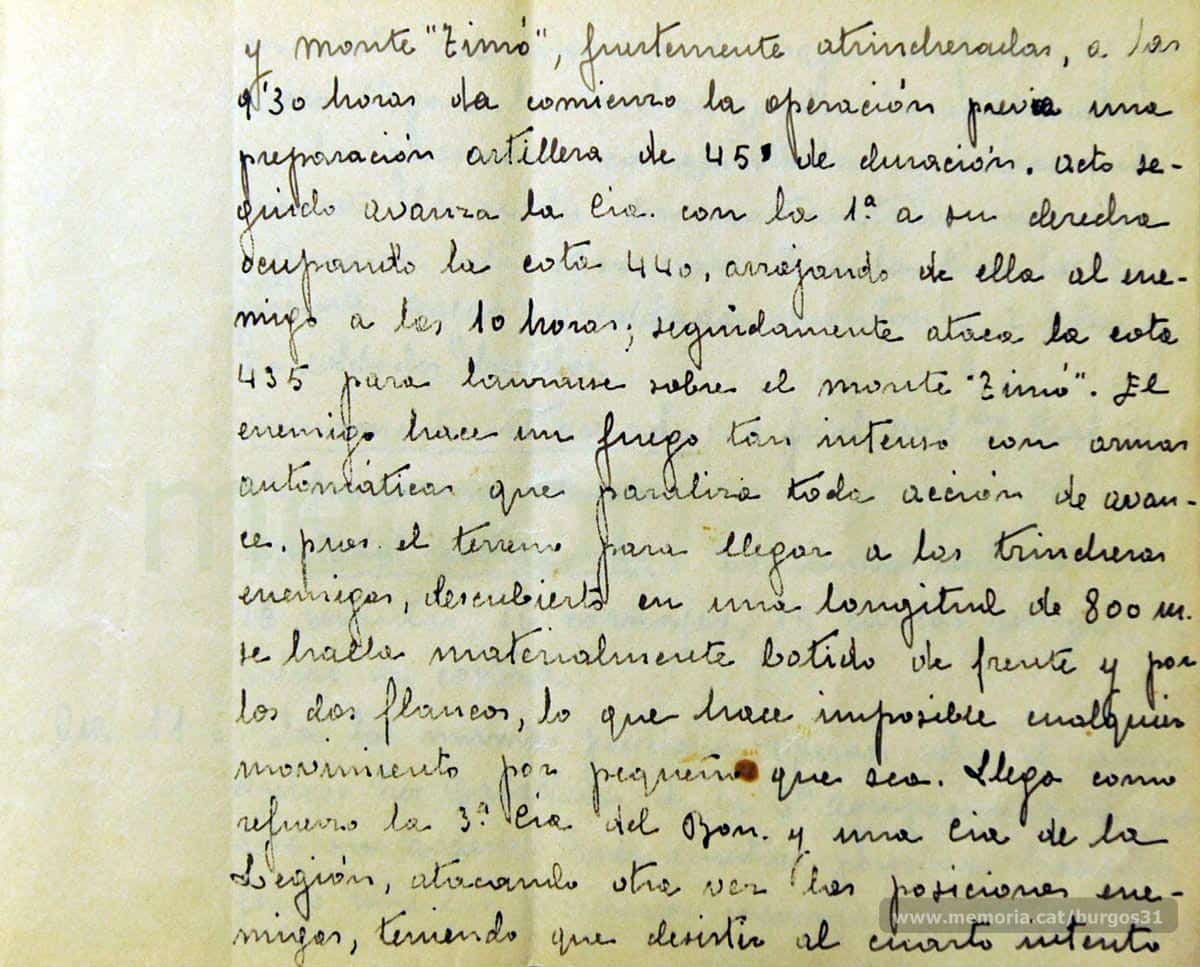 y monte "Zimó", fuertemente atrincheradas, a las
9'30 horas da comienzo la operación previa una
preparación artillera de 45' de duración. acto se-
guido avanza la Cia. con la 1ª a su derecha
ocupando la cota 440, arrojando de ella al ene-
migo a las 10 horas; seguidamente ataca la cota
435 para lanzarse sobre el monte "Zimó". El
enemigo hace un fuego tan intenso con armas
automáticas que paraliza toda acción de avan-
ce. pues. el terreno para llegar a las trincheras
enemigas, descubierto en una longitud de 800 m.
se halla materialmente batido de frente y por
los dos flancos, lo que hace imposible cualquier
movimiento por pequeño que sea. Llega como
refuerzo la 3ª Cia del Bon. y una Cia de la
Legión, atacando otra vez las posiciones ene-
migas, teniendo que desistir al cuarto intento
www.memoria.cat/burgos31